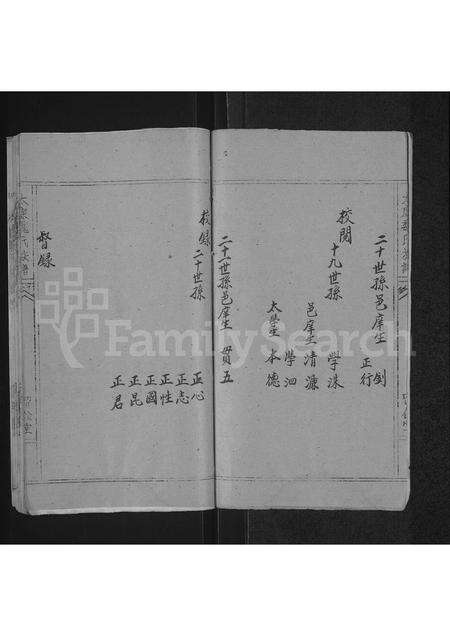 二十世孫邑庠生
正釗
正行
校閱
十九世孫
學洙
邑庠生清濂
學泗
太學生本德
二十一世孫邑庠生貫五
校錄
二十世孫
正心
正志
正性
正國
正昆
正君
督錄
FamilySearch